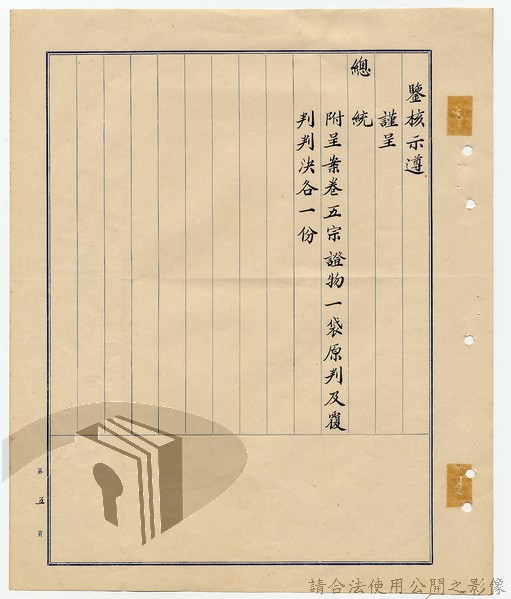 鑒核示遵
謹呈
總統
附呈案卷五宗證物一袋原判及覆
判判決各一份
第五頁
請合法使用公開之影像